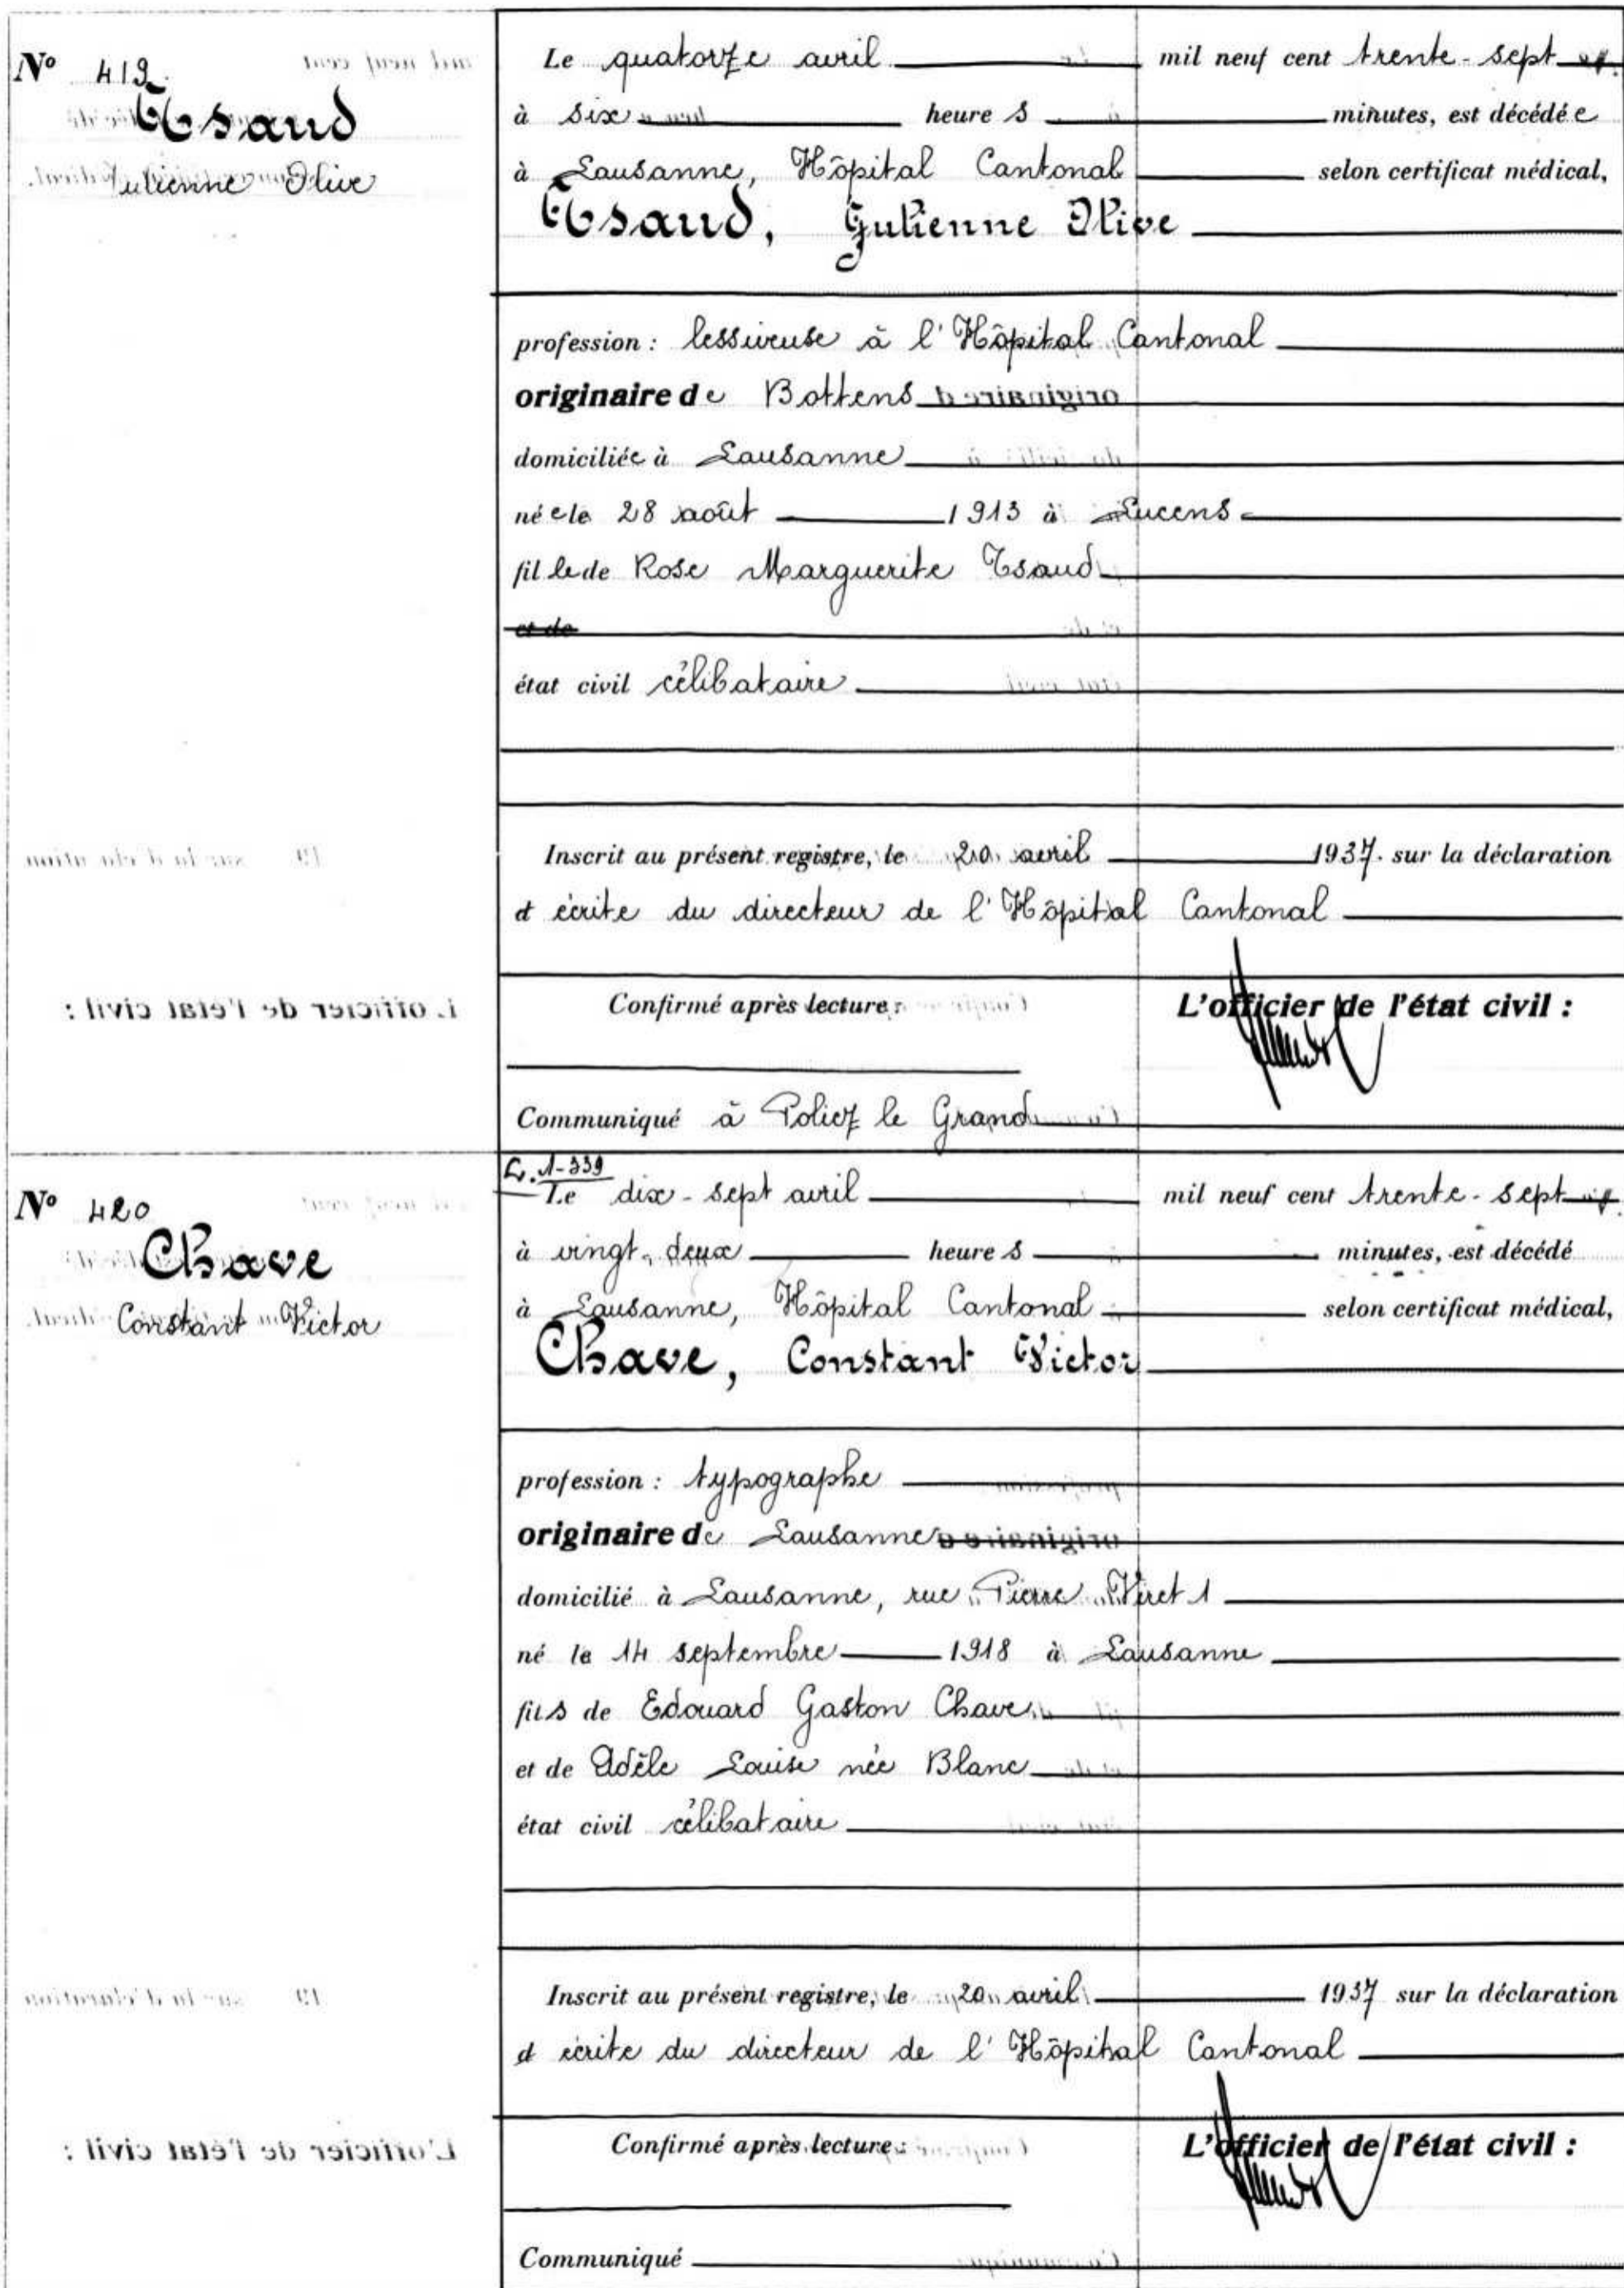 No 419.
Isaud
Julienne Olive
Le quatorze avril mil neuf cent trente-sept
à six heures minutes, est décédée
à Lausanne, Hôpital Cantonal selon certificat médical,
Isaud, Julienne Olive
profession : lessiveuse à l'Hôpital Cantonal
originaire de Bottens
domiciliée à Lausanne
née le 28 août 1913 à Lucens
fille de Rose Marguerite Isaud
et de
état civil célibataire
Inscrit au présent registre, le 20 avril 1937. sur la déclaration
écrite du directeur de l'Hôpital Cantonal
Confirmé après lecture : L'officier de l'état civil :
Communiqué à Poliez le Grand
No 420
Chave
Constant Victor
1-339
Le dix-sept avril mil neuf cent trente-sept
à vingt-deux heures minutes, est décédé
à Lausanne, Hôpital Cantonal selon certificat médical,
Chave, Constant Victor
profession : typographe
originaire de Lausanne
domicilié à Lausanne, rue Pierre Viret 1
né le 14 septembre 1918 à Lausanne
fils de Edouard Gaston Chave
et de Adèle Louise née Blanc
état civil célibataire
Inscrit au présent registre, le 20 avril 1937 sur la déclaration
écrite du directeur de l'Hôpital Cantonal
Confirmé après lecture : L'officier de l'état civil :
Communiqué